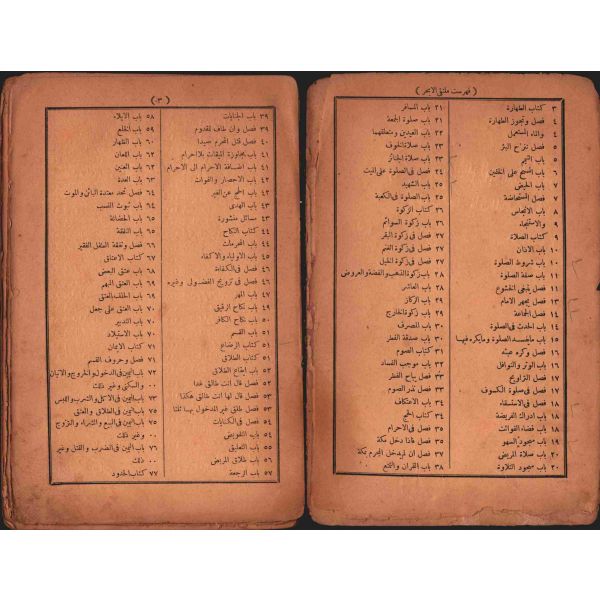 ( فهرست ملتقى الابحر )
٣ كتاب الطهارة
٤ فصل وتجوز الطهارة
٤ والماء المستعمل
٥ فصل تنزح البئر
٥ باب التيمم
٦ باب المسح على الخفين
٧ باب الحيض
٧ فصل المستحاضة
٨ باب الانجاس
٩ والاستنجاء
٩ كتاب الصلاة
١٠ باب الاذان
١٠ باب شروط الصلوة
١١ باب صفة الصلوة
١١ فصل ينبغى الخشوع
١٢ فصل يجهر الامام
١٣ فصل الجماعة
١٤ باب الحدث فى الصلوة
١٥ باب مايفسد الصلوة ومايكره فيها
١٦ فصل وكره عبثه
١٦ باب الوتر والنوافل
١٧ فصل التراويح
١٧ فصل فى صلوة الكسوف
١٧ فصل فى الاستسقاء
١٨ باب ادراك الفريضة
١٨ باب قضاء الفوائت
١٩ باب سجود السهو
٢٠ باب صلاة المريض
٢٠ باب سجود التلاوة
٢١ باب المسافر
٢١ باب صلوة الجمعة
٢٢ باب العيدين ومتعلقهما
٢٣ باب صلاة الخوف
٢٣ باب صلاة الجنائز
٢٤ فصل فى الصلاة على الميت
٢٥ باب الشهيد
٢٥ باب فى الصلوة فى الكعبة
٢٦ كتاب الزكوة
٢٦ باب زكوة السوائم
٢٧ فصل فى زكوة البقر
٢٧ فصل فى زكوة الغنم
٢٧ فصل فى زكوة الخيل
٢٨ باب زكوة الذهب والفضة والعروض
٢٨ باب العاشر
٢٩ باب الركاز
٢٩ باب زكوة الخارج
٣٠ باب المصرف
٣٠ باب صدقة الفطر
٣١ كتاب الصوم
٣٢ باب موجب الفساد
٣٣ فصل يباح الفطر
٣٣ فصل نذر الصوم
٣٤ باب الاعتكاف
٣٤ كتاب الحج
٣٥ فصل فى الاحرام
٣٥ فصل فاذا دخل مكة
٣٧ فصل ان لم يدخل المحرم مكة
٣٨ باب القران والتمتع
( ٠٣ )
٣٩ باب الجنايات
٣٩ فصل وان طاف للقدوم
٤٠ فصل قتل المحرم صيدا
٤١ باب مجاوزة الميقات بلا احرام
٤١ باب اضافة الاحرام الى الاحرام
٤٢ باب الاحصار والفوات
٤٢ باب الحج عن الغير
٤٣ باب الهدى
٤٣ مسائل منثورة
٤٤ كتاب النكاح
٤٤ باب المحرمات
٤٥ باب الاولياء والاكفاء
٤٦ فصل فى الكفاءة
٤٦ فصل فى تزويج الفضولى وغيره
٤٧ باب المهر
٤٩ باب نكاح الرقيق
٥٠ باب نكاح الكافر
٥١ باب القسم
٥١ كتاب الرضاع
٥١ كتاب الطلاق
٥٢ باب ايقاع الطلاق
٥٢ فصل قال انت طالق غدا
٥٣ فصل قال لها انت طالق هكذا
٥٣ فصل طلق غير المدخول بها ثلثا
٥٤ فصل فى الكنايات
٥٤ باب التفويض
٥٥ باب التعليق
٥٦ باب طلاق المريض
٥٧ باب الرجعة
٥٨ باب الايلاء
٥٩ باب الخلع
٦٠ باب الظهار
٦١ باب اللعان
٦٢ باب العنين
٦٢ باب العدة
٦٣ فصل تحد معتدة البائن والموت
٦٤ باب ثبوت النسب
٦٥ باب الحضانة
٦٥ باب النفقة
٦٦ فصل ونفقة الطفل الفقير
٦٧ كتاب الاعتاق
٦٨ باب عتق البعض
٦٩ باب العتق المبهم
٦٩ باب الحلف بالعتق
٦٩ باب العتق على جعل
٧٠ باب التدبير
٧٠ باب الاستيلاد
٧٠ كتاب الايمان
٧١ فصل وحروف القسم
٧٢ باب اليمين فى الدخول والخروج والاتيان
٠٠ والسكنى وغير ذلك
٧٣ باب اليمين فى الاكل والشرب واللبس
٧٥ باب اليمين فى الطلاق والعتق
٧٥ باب اليمين فى البيع والشراء والتزوج
٠٠ وغير ذلك
٧٦ باب اليمين فى الضرب والقتل وغير
٠٠ ذلك
٧٧ كتاب الحدود